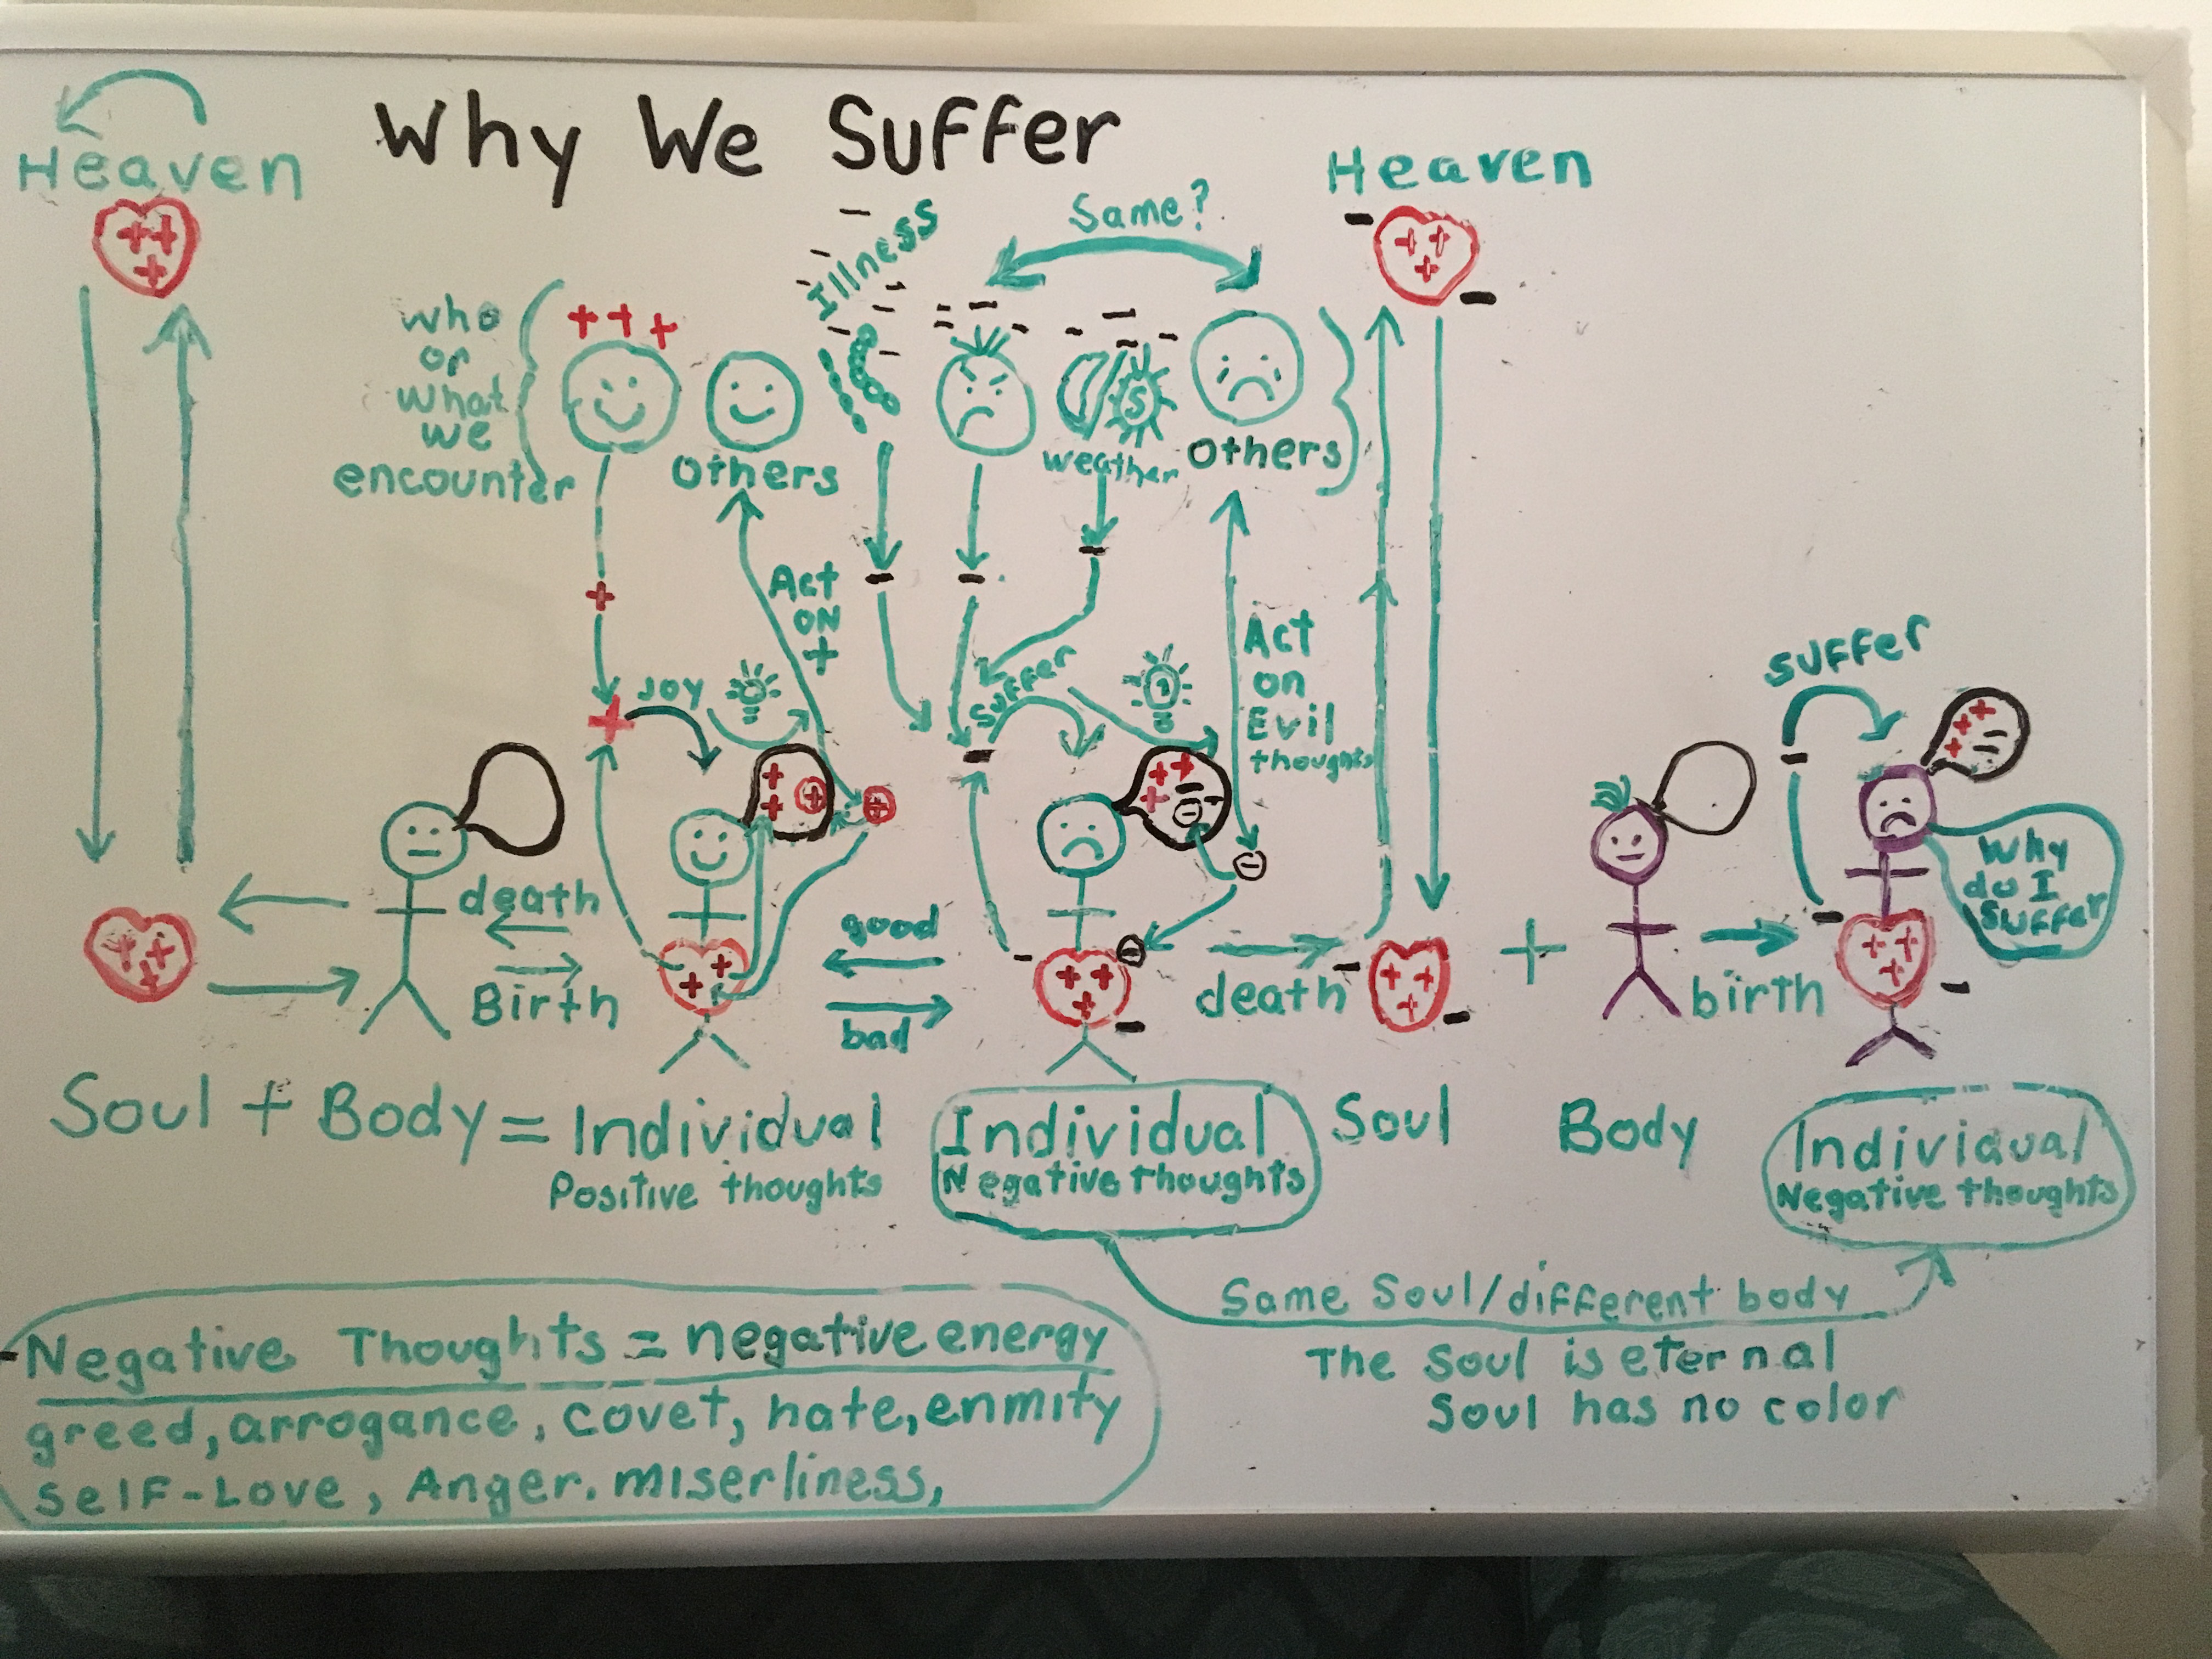 Why We Suffer
Heaven
Heaven
Same?
Illness
who
or
what
we
encounter
Others
weather
Others
Act
ON
+
Act
on
Evil
thoughts
Joy
Suffer
Suffer
Why
do I
Suffer
death
Birth
good
bad
death
+
birth
Soul + Body = Individual
Positive thoughts
Individual
Negative thoughts
Soul
Body
Individual
Negative thoughts
Same Soul/different body
The Soul is eternal
Soul has no color
-Negative Thoughts = negative energy
greed, arrogance, covet, hate, enmity
Self-Love, Anger. miserliness,